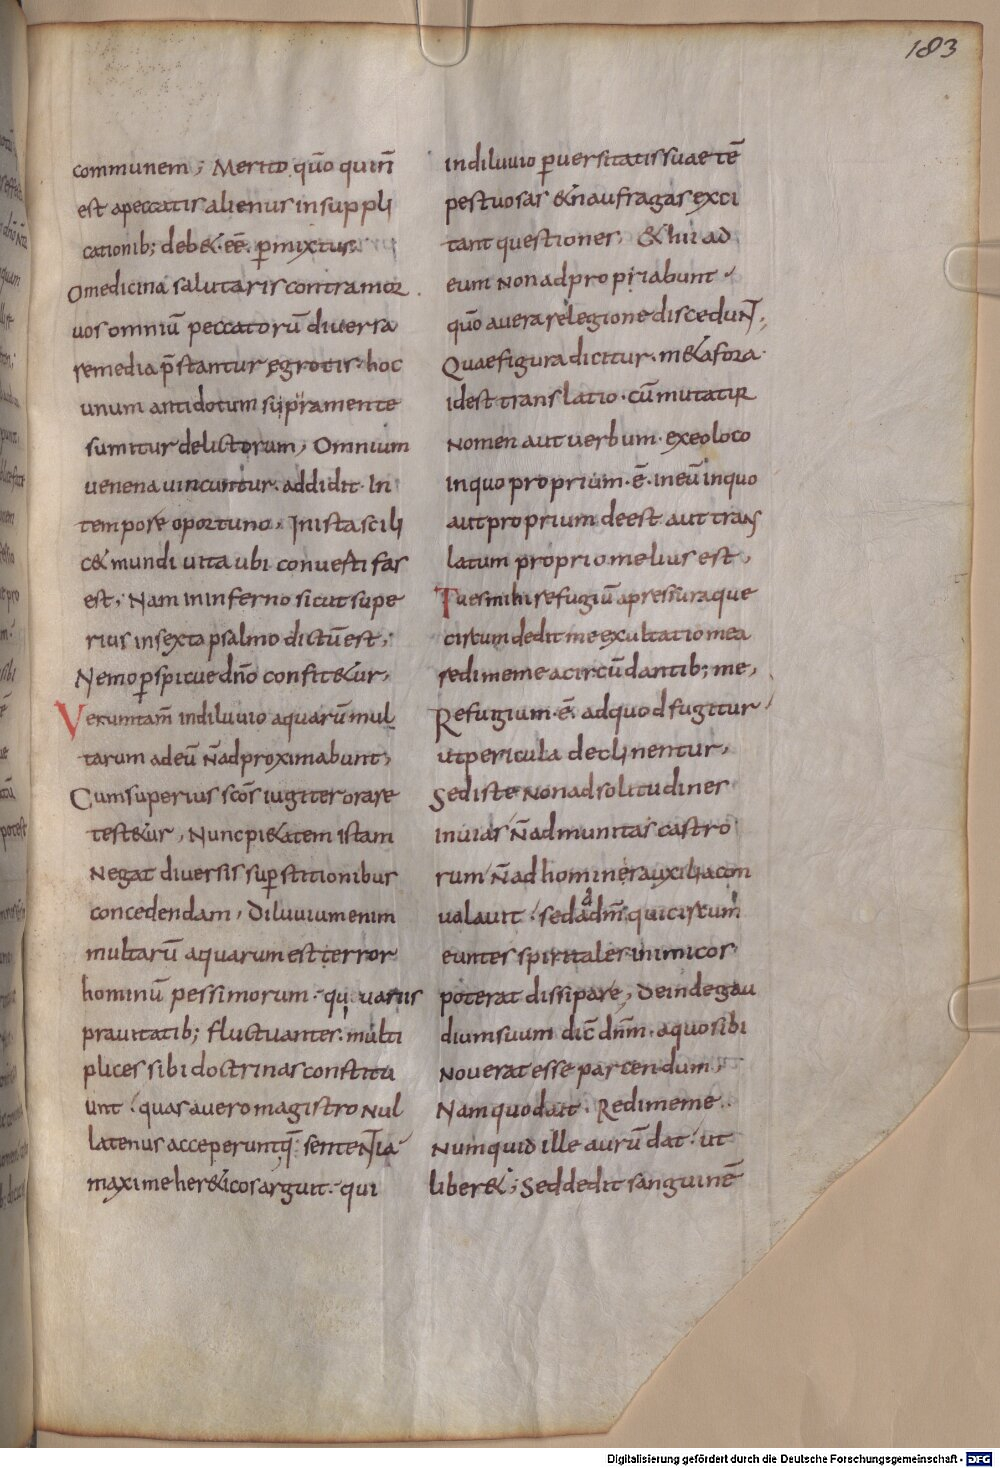 183
communem; Merito qūo quiñ
est apeccatis alienus in suppli
cationib; deb&. eē. p̱mixtus.
O medicina salutaris contra mor
uos omniū peccatorū diuersa
remedia p̄stantur egrotis. hoc
unum antidotum supra mente
sumitur delictorum, Omnium
uenena uincuntur. addidit. In
tempore oportuno, In ista scili
c& mundi uita ubi conuerti fas
est, Nam in inferno sicut supe
rius in sexta psalmo dictū est,
Nemo p̱spicue dn̄o confit&ur,
Verumtam̄ in diluuio aquarū mul
tarum ad eū n̄ adproximabunt,
Cum superius scōs iugiter orare
test&ur, Nunc pi&atem istam
Negat diuersis sup̱stitionibus
concedendam, Diluuium enim
multarū aquarum est terror
hominū pessimorum. qui uariis
prauitatib; fluctuantes. multi
plices sibi doctrinas constitu
unt. quas a uero magistro Nul
latenus acceperunt q;̄ sententia
maxime her&icos arguit. qui
in diluuio p̱uersitatis suae tē
pestuosas & naufragas exci
tant questiones, & hii ad
eum Non adpropiriabunt.
qūo a uera relegione discedunt,
Quae figura dicitur. m&afora.
id est translatio. cū mutatur
Nomen aut uerbum. ex eo loco
in quo proprium. ē. in eū in quo
aut proprium deest. aut trans
latum proprio melius est,
Tu es mihi refugiū a pressura que
circum dedit me exultatio mea
redime me a circūdantib; me,
Refugium. ē. ad quod fugitur
ut pericula declinentur,
Sed iste Non ad solitudines
inuias n̄ ad munitas castro
rum n̄ ad homines auxilia con
ualauit. sed ad dm̄. qui circum
euntes spiritales inimicos
poterat dissipare, Deinde gau
dium suum dic̄ dn̄m. a quo sibi
Nouerat esse parcendum,
Nam quod ait. Redime me.
Numquid ille aurū dat. ut
liber&; Sed dedit sanguinē
Digitalisierung gefördert durch die Deutsche Forschungsgemeinschaft - DFG